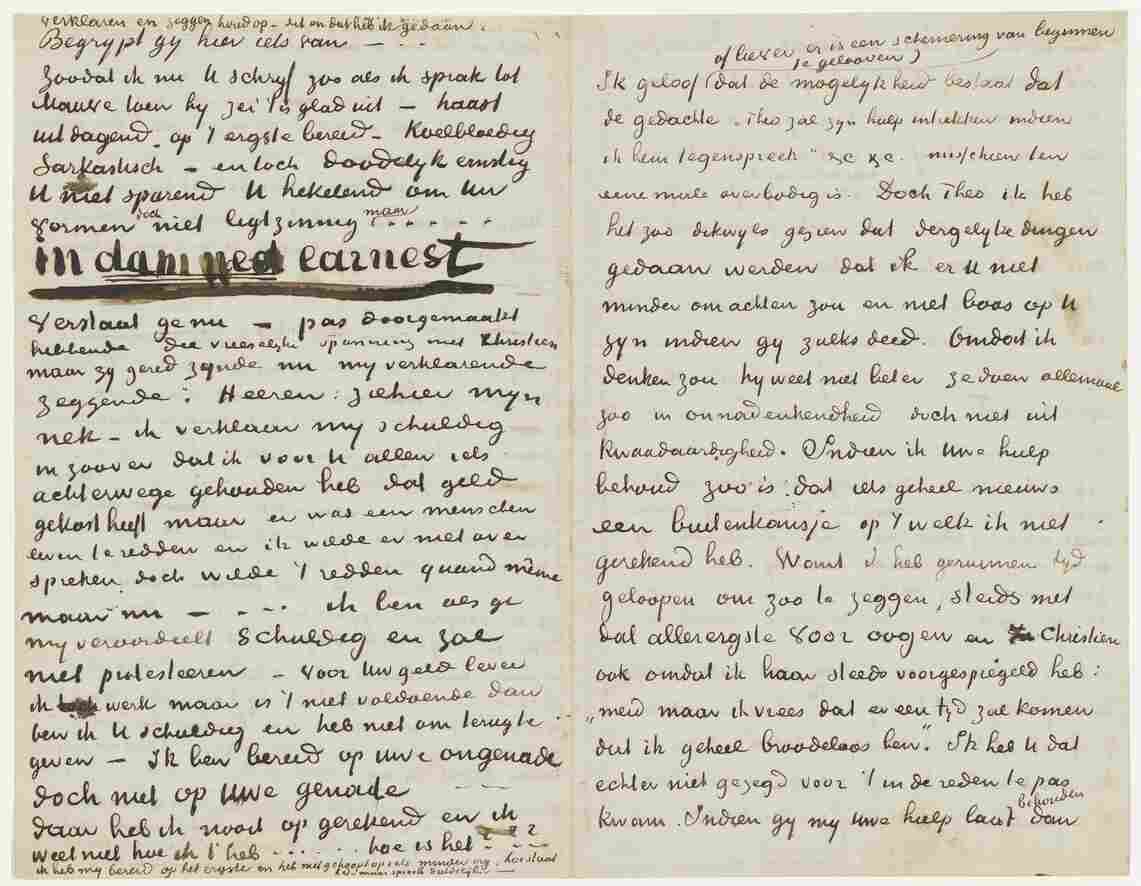 verklaren en zeggen houd op – dit en dat heb ik gedaan.
Begrypt gy hier iets van – – . . .
Zoodat ik nu U schryf zoo als ik sprak tot
Mauve toen hy zei 't is glad uit – haast
uitdagend, op 't ergste bereid – Koelbloedig
Sarkastisch – en toch doodelyk ernstig
U niet sparend U hekelend om Uw
vormen doch niet ligtzinnig maar . . . . . .
in damned earnest
Verstaat ge nu – pas doorgemaakt
hebbende die vreeselyke spanning met Christien
maar zy gered zynde nu my verklarende
zeggende: Heeren: ziehier myn
nek – ik verklaar my schuldig
in zoover dat ik voor U allen iets
achterwege gehouden heb dat geld
gekost heeft maar er was een menschen
leven te redden en ik wilde er niet over
spreken doch wilde 't redden quand même
maar nu – – . . . ik ben als ge
my veroordeelt Schuldig en zal
niet protesteeren – voor Uw geld lever
ik werk maar is 't niet voldoende dan
ben ik U schuldig en heb niet om terug te
geven – Ik ben bereid op uwe ongenade
doch niet op uwe genade
daar heb ik nooit op gerekend en ik
weet niet hoe ik 't heb . . . . . . hoe is het ? ? ?
ik heb my bereid op het ergste en heb niet gehoopt op iets minder erg. hoe staat
het maar spreek duidelyk. –
of liever er is een schemering van beginnen
te gelooven)
Ik geloof (dat de mogelykheid bestaat dat
de gedachte „Theo zal zyn hulp intrekken indien
ik hem tegenspreek" &c &c. misschien ten
eene male overbodig is. Doch Theo ik heb
het zoo dikwyls gezien dat dergelyke dingen
gedaan werden dat ik er U niet
minder om achten zou en niet boos op U
zyn indien gy zulks deed. Omdat ik
denken zou hy weet niet beter ze doen allemaal
zoo in onnadenkendheid doch niet uit
kwaadaardigheid. Indien ik Uwe hulp
behoud zoo is dat iets geheel nieuws
een buitenkansje op 't welk ik niet
gerekend heb. Want ik heb geruimen tyd
geloopen om zoo te zeggen, steeds met
dat allerergste voor oogen en Christien
ook omdat ik haar steeds voorgespiegeld heb:
„meid maar ik vrees dat er een tyd zal komen
dat ik geheel broodeloos ben". Ik heb U dat
echter niet gezegd voor 't in de reden te pas
kwam. Indien gy my Uwe hulp laat behouden dan